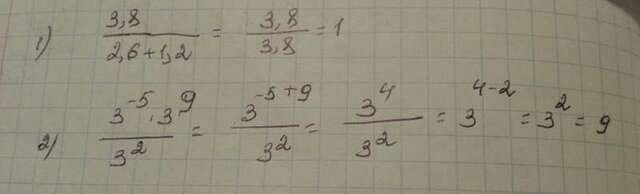 1) 3,8 / 2,6+1,2 = 3,8 / 3,8 = 1
2) 3^-5 · 3^9 / 3^2 = 3^-5+9 / 3^2 = 3^4 / 3^2 = 3^4-2 = 3^2 = 9